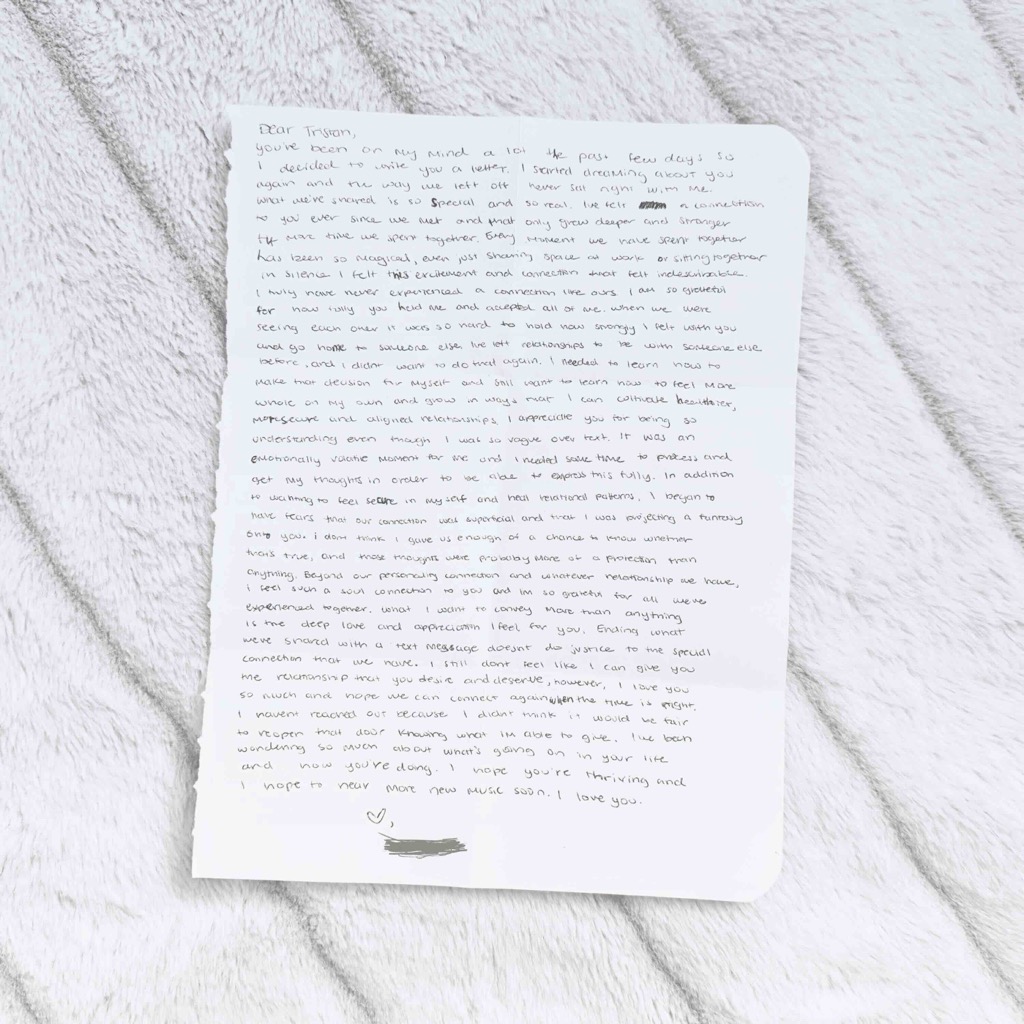 Dear Tristan,
you've been on my mind a lot the past few days so
I decided to write you a letter. I started dreaming about you
again and the way we left off never sat right with me.
what we've shared is so special and so real. I've felt a connection
to you ever since we met and that only grew deeper and stronger
the more time we spent together. Every moment we have spent together
has been so magical, even just sharing space at work or sitting together
in silence I felt this excitement and connection that felt indescribable.
I truly have never experienced a connection like ours. I am so grateful
for how fully you held me and accepted all of me. when we were
seeing each other it was so hard to hold how strongly I felt with you
and go home to someone else. I've left relationships to be with someone else
before, and I didn't want to do that again. I needed to learn how to
make that decision for myself and still want to learn how to feel more
whole on my own and grow in ways that I can cultivate healthier,
more secure and aligned relationships. I appreciate you for being so
understanding even though I was so vague over text. It was an
emotionally volatile moment for me and I needed some time to process and
get my thoughts in order to be able to express this fully. In addition
to wanting to feel secure in myself and heal relational patterns, I began to
have fears that our connection was superficial and that I was projecting a fantasy
onto you. i dont think I gave us enough of a chance to know whether
that's true, and those thoughts were probably more of a protection than
anything. Beyond our personality connection and whatever relationship we have,
i feel such a soul connection to you and im so grateful for all we've
experienced together. what I want to convey more than anything
is the deep love and appreciation I feel for you. Ending what
we've shared with a text message doesnt do justice to the special
connection that we have. I still dont feel like I can give you
the relationship that you desire and deserve, however, I love you
so much and hope we can connect again when the time is right.
I havent reached out because I didnt think it would be fair
to reopen that door knowing what im able to give. I've been
wondering so much about what's going on in your life
and how you're doing. I hope you're thriving and
I hope to hear more new music soon. I love you.